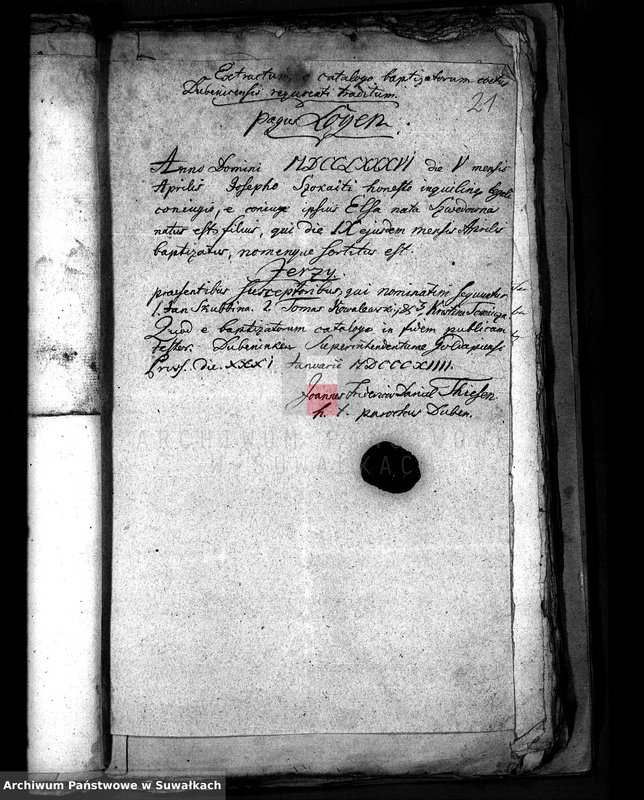 Extractum, e catalogo baptizatorum coetus
Dubenicensis requirenti traditum.
21
pagus Loyen.
Anno Domini MDCCLXXXVI die V mensis
Aprilis Josepho Szokaiti honesto inquilino legali
coniugio, e coniuge ipsius Elsa nata Szwedowna
natus est filius, qui die IX ejusdem mensis Aprilis
baptizatus, nomenque sortitus est.
Jerzy.
praesentibus Susceptoribus, qui nominatim sequuntur
1. Jan Skubbina. 2 Tomas Kowalewski, & 3 Kristina
Quod e baptizatorum catalogo in fidem publicam
testor. Dubeninken Superintendenturae Goldapensis
Pruss. die XXXI Januarii MDCCCXIIII.
Joannes Fridericus Daniel Thiesen
h. t. parochus Duben.
ARCHIWUM PAŃSTWOWE
W SUWAŁKACH
Archiwum Państwowe w Suwałkach